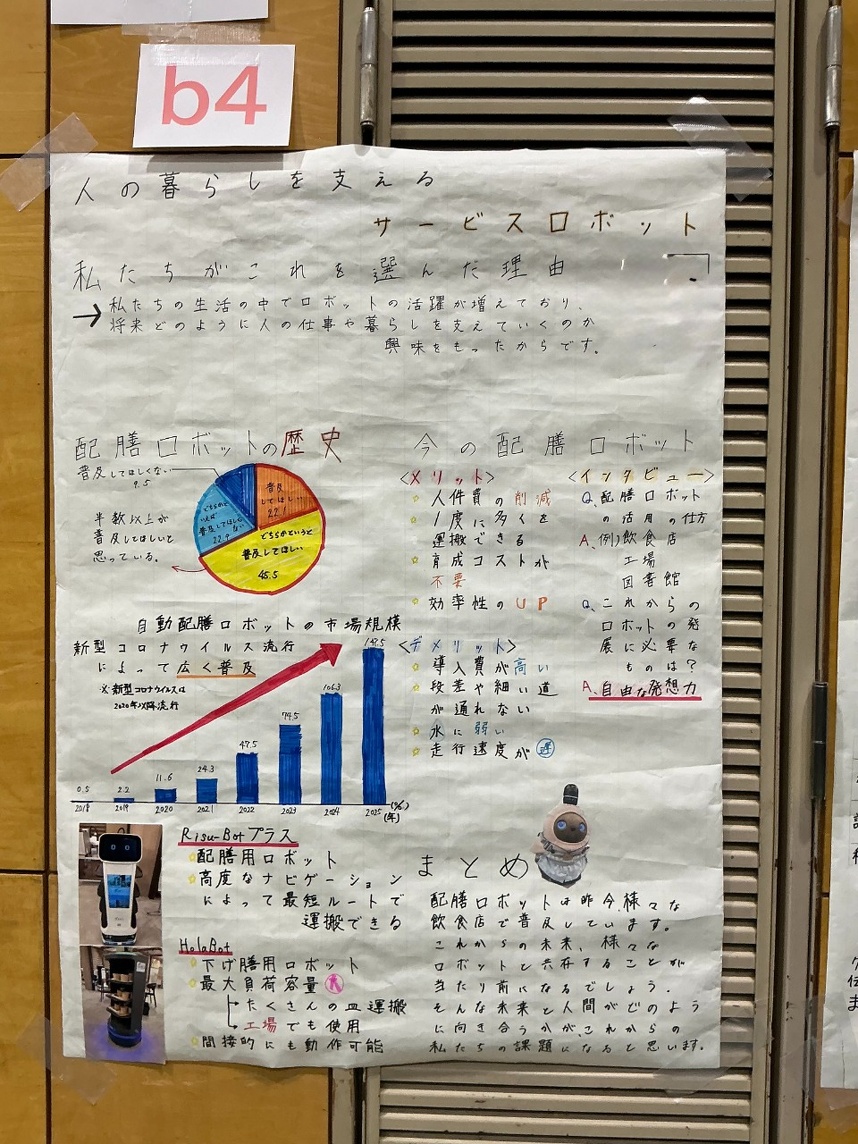 b4
人の暮らしを支える
サービスロボット
私たちがこれを選んだ理由
→私たちの生活の中でロボットの活躍が増えており、
将来どのように人の仕事や暮らしを支えていくのか
興味をもったからです。
配膳ロボットの歴史
普及してほしくない
9.5
普及してほしい
22.1
どちらかといえば普及してほしくない
22.9
どちらかというと
普及してほしい
45.5
半数以上が
普及してほしいと
思っている。
自動配膳ロボットの市場規模
新型コロナウイルス流行
によって広く普及
※新型コロナウイルスは
2020年以降流行
0.5 2.2 11.6 24.3 47.5 74.5 106.3 147.5
2018 2019 2020 2021 2022 2023 2024 2025
(年)
Risu-Botプラス
☆配膳用ロボット
☆高度なナビゲーション
によって最短ルートで
運搬できる
HolaBot
☆下げ膳用ロボット
☆最大負荷容量大
たくさんの皿運搬
工場でも使用
☆間接的にも動作可能
今の配膳ロボット
<メリット>
☆人件費の削減
☆1度に多くを
運搬できる
☆育成コストが
不要
☆効率性のUP
<デメリット>
☆導入費が高い
☆段差や細い道
が通れない
☆水に弱い
☆走行速度が遅
<インタビュー>
Q、配膳ロボット
の活用の仕方
A、例)飲食店
工場
図書館
Q、これからの
ロボットの発
展に必要な
ものは?
A、自由な発想力
まとめ
配膳ロボットは昨今、様々な
飲食店で普及しています。
これからの未来、様々な
ロボットと共存することが
当たり前になるでしょう。
そんな未来と人間がどのよう
に向き合うかが、これからの
私たちの課題になると思います。